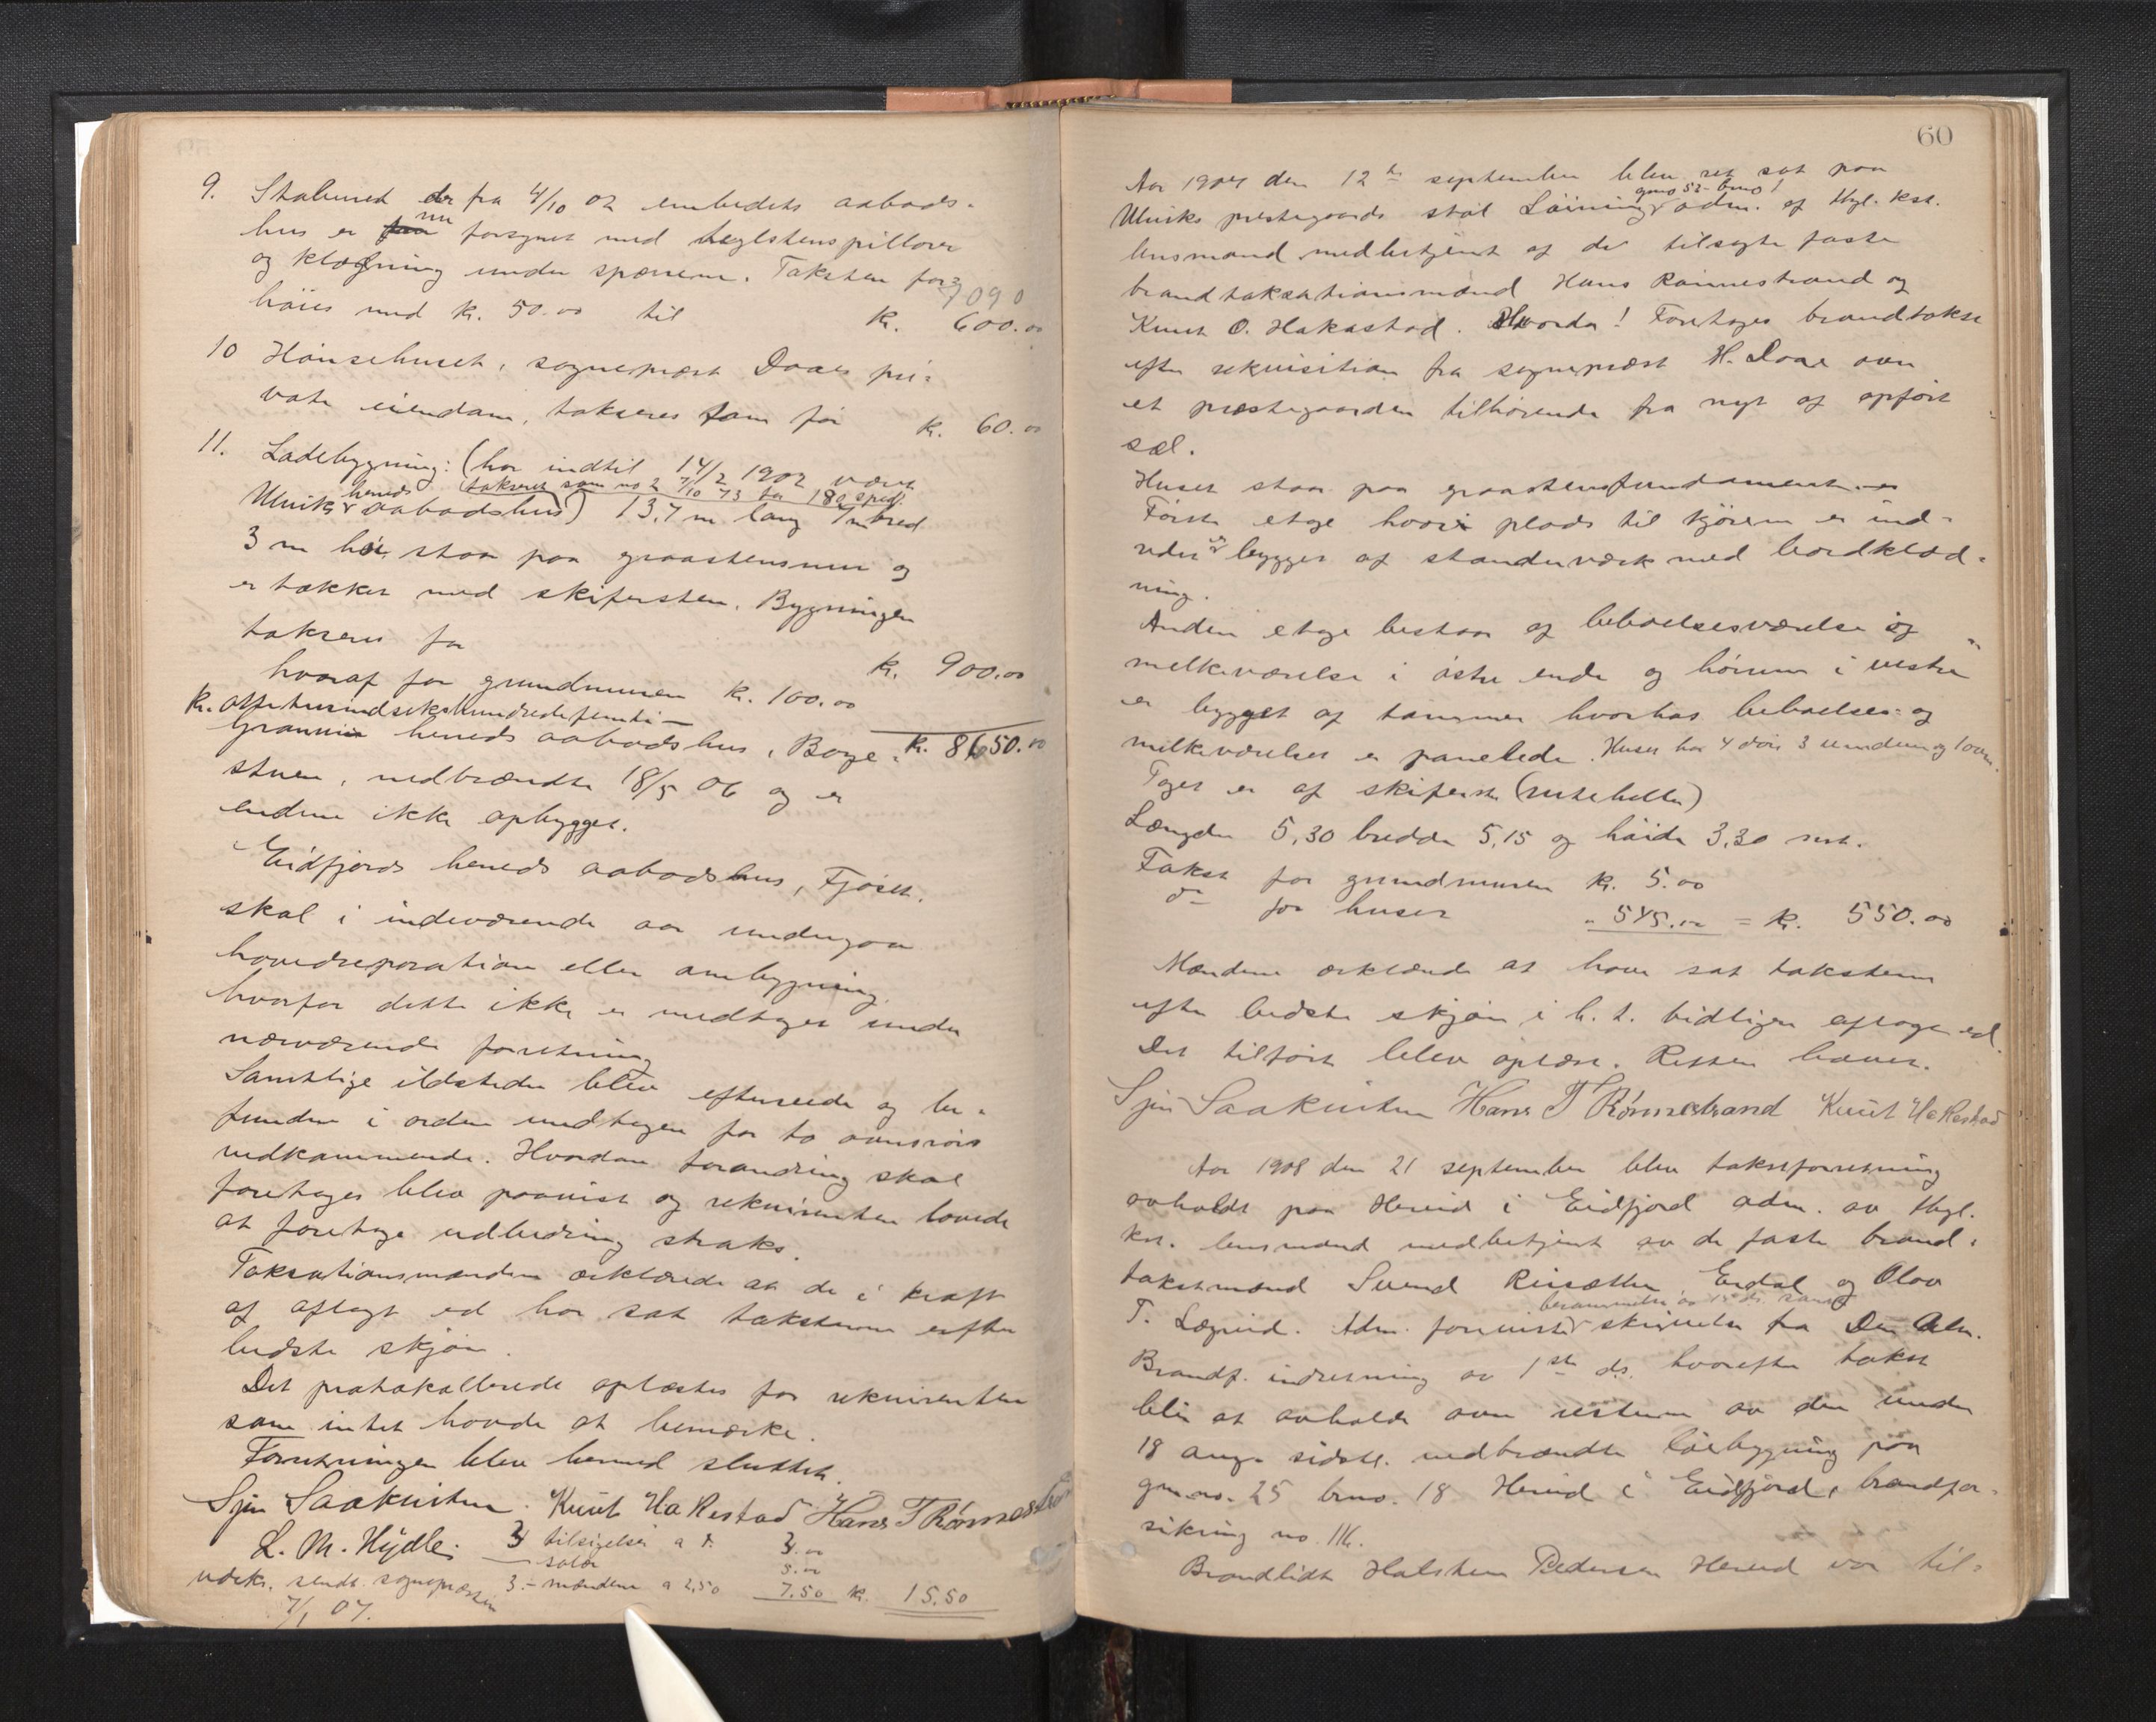 9. Staburet der fra 4/10 02 embedets aabods-
hus er nu forsynet med teglstenspillarer
og klædning under sperrerne. Taksten for-
7090
høies med kr. 50.00 til kr. 600.00
10 Hønsehuset, sogneprest Daaes pri-
vate eiendom, takseres som før kr. 60.00
11. Ladebygning: (har indtil 14/2 1902 været
takseret som no 2 7/10 73 for 180 spd.
Ulviks herreds aabodshus) 13,7 m lang 7 m bred
3 m høi staar paa graastensmur og
er tækket med skifersten. Bygningen
takseres for
kr. 900.00
hvoraf for grundmuren kr. 100.00
kr. ottetusindsekshundredefemti —
kr. 8650.00
Granvin herreds aabodshus, Borge-
stuen, nedbrændte 18/5 06 og er
endnu ikke opbygget.
Eidfjords herreds aabodshus, Fjøset.
skal i indeværende aar undergaa
hovedreparation eller ombygning
hvorfor dette ikke er medtaget under
nærværende forretning
Samtlige ildsteder blev efterseede og be-
fundne i orden undtagen for to ovnsrørs
vedkommende. Hvordan forandring skal
foretages blev paavist og rekvirenten lovede
at foretage udbedring straks.
Taksationsmændene erklærede at de i kraft
af aflagt ed har sat taksterne efter
bedste skjøn.
Det protokollerede oplæstes for rekvirenten
som intet havde at bemerke.
Forretningen blev hermed sluttet.
Sjur Saakvitne. Knut Hakestad Hans T Rønnestrand
L. M. Hydle. 3 tilsigelser a 1. 3.00
salær 5.00
3 - mændene a 2,50 7.50 kr. 15.50
udskr. sendt sognepresten
7/1 07.
60
Aar 1907 den 12te september blev ret sat paa
gno 52 bno 1
Ulviks prestegaards støl Løining adm. af Kgl. kst.
lensmand medbetjent af de tilsagte faste
brandtaksationsmænd Hans Rønnestrand og
Knut O. Hakastad. Hvorda! Foretages brandtakst
efter rekvisition fra sogneprest H. Daae over
et præstegaarden tilhørende fra nyt af opført
sæl.
Huset staar paa graastensfundament.
Første etage hvori plads til kjørerne er ind-
redet er bygget af standerværk med bordklæd-
ning.
Anden etage bestaar af beboelsesværelse og
melkeværelse i østre ende og hørum i vestre
er bygget af tømmer hvorhos beboelses- og
melkeværelset er panelede. Huset har 4 døre 3 vinduer og 1 ovn.
Taget er af skifersten (ruteheller)
Længde 5,30 bredde 5,15 og høide 3,30 mt.
Takst for grundmuren kr. 5.00
do for huset " 545.00 = kr. 550.00
Mændene erklærede at have sat taksterne
efter bedste skjøn i h. t. tidligere aflagt ed.
Det tilførte blev oplæst. Retten hævet.
Sjur Saakvitne Hans T Rønnestrand Knut Hakestad
Aar 1908 den 21 september blev takstforretning
avholdt paa Hereid i Eidfjord adm. av Kgl.
kst. lensmand medbetjent av de faste brand-
takstmænd Svend Riisætter Erdal og Olav
berammelse av 15 ds. samt
T. Lægreid. Adm. foreviste skrivelse fra Den Alm.
Brandf. indretning av 1ste ds. hvorefter takst
blir at avholde over resterne av den under
18 aug. sidstl. nedbrændte løebygning paa
gn. no. 25 brno. 18 Hereid i Eidfjord, brandfor-
sikring no. 116.
Brandlidte Halsten Pedersen Hereid var til-